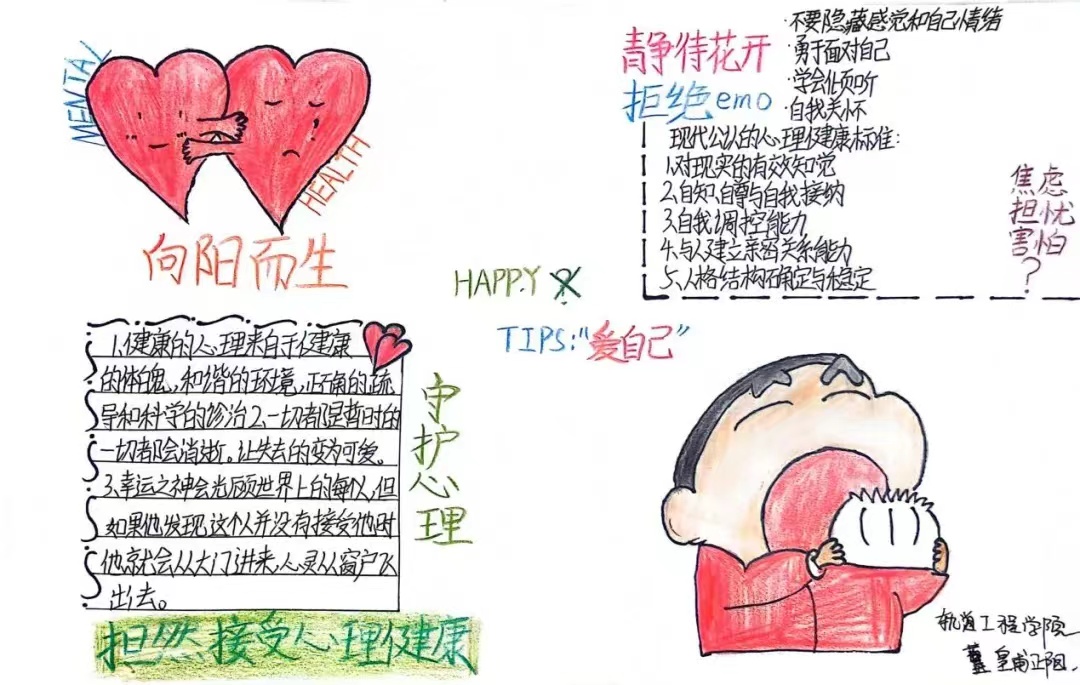 MENTAL
HEALTH
向阳而生
静待花开
拒绝emo
·不要隐藏感觉和自己情绪
·勇于面对自己
·学会倾听
·自我关怀
现代公认的心理健康标准:
1.对现实的有效知觉
2.自知自尊与自我接纳
3.自我调控能力
4.与人建立亲密关系能力
5.人格结构稳定与
焦虑
担忧
害怕
?
HAPPY
TIPS:“爱自己”
1.健康的心理来自于健康
的体魄,和谐的环境,正确的疏
导和科学的诊治2.一切都是暂时的
一切都会消逝。让失去的变为可爱。
3.幸运之神会光顾世界上的每个人,但
如果他发现这个人并没有接受他时
他就会从大门进来,心灵从窗户飞
出去。
守护心理
担然接受心理健康
轨道工程学院
皇甫正阳